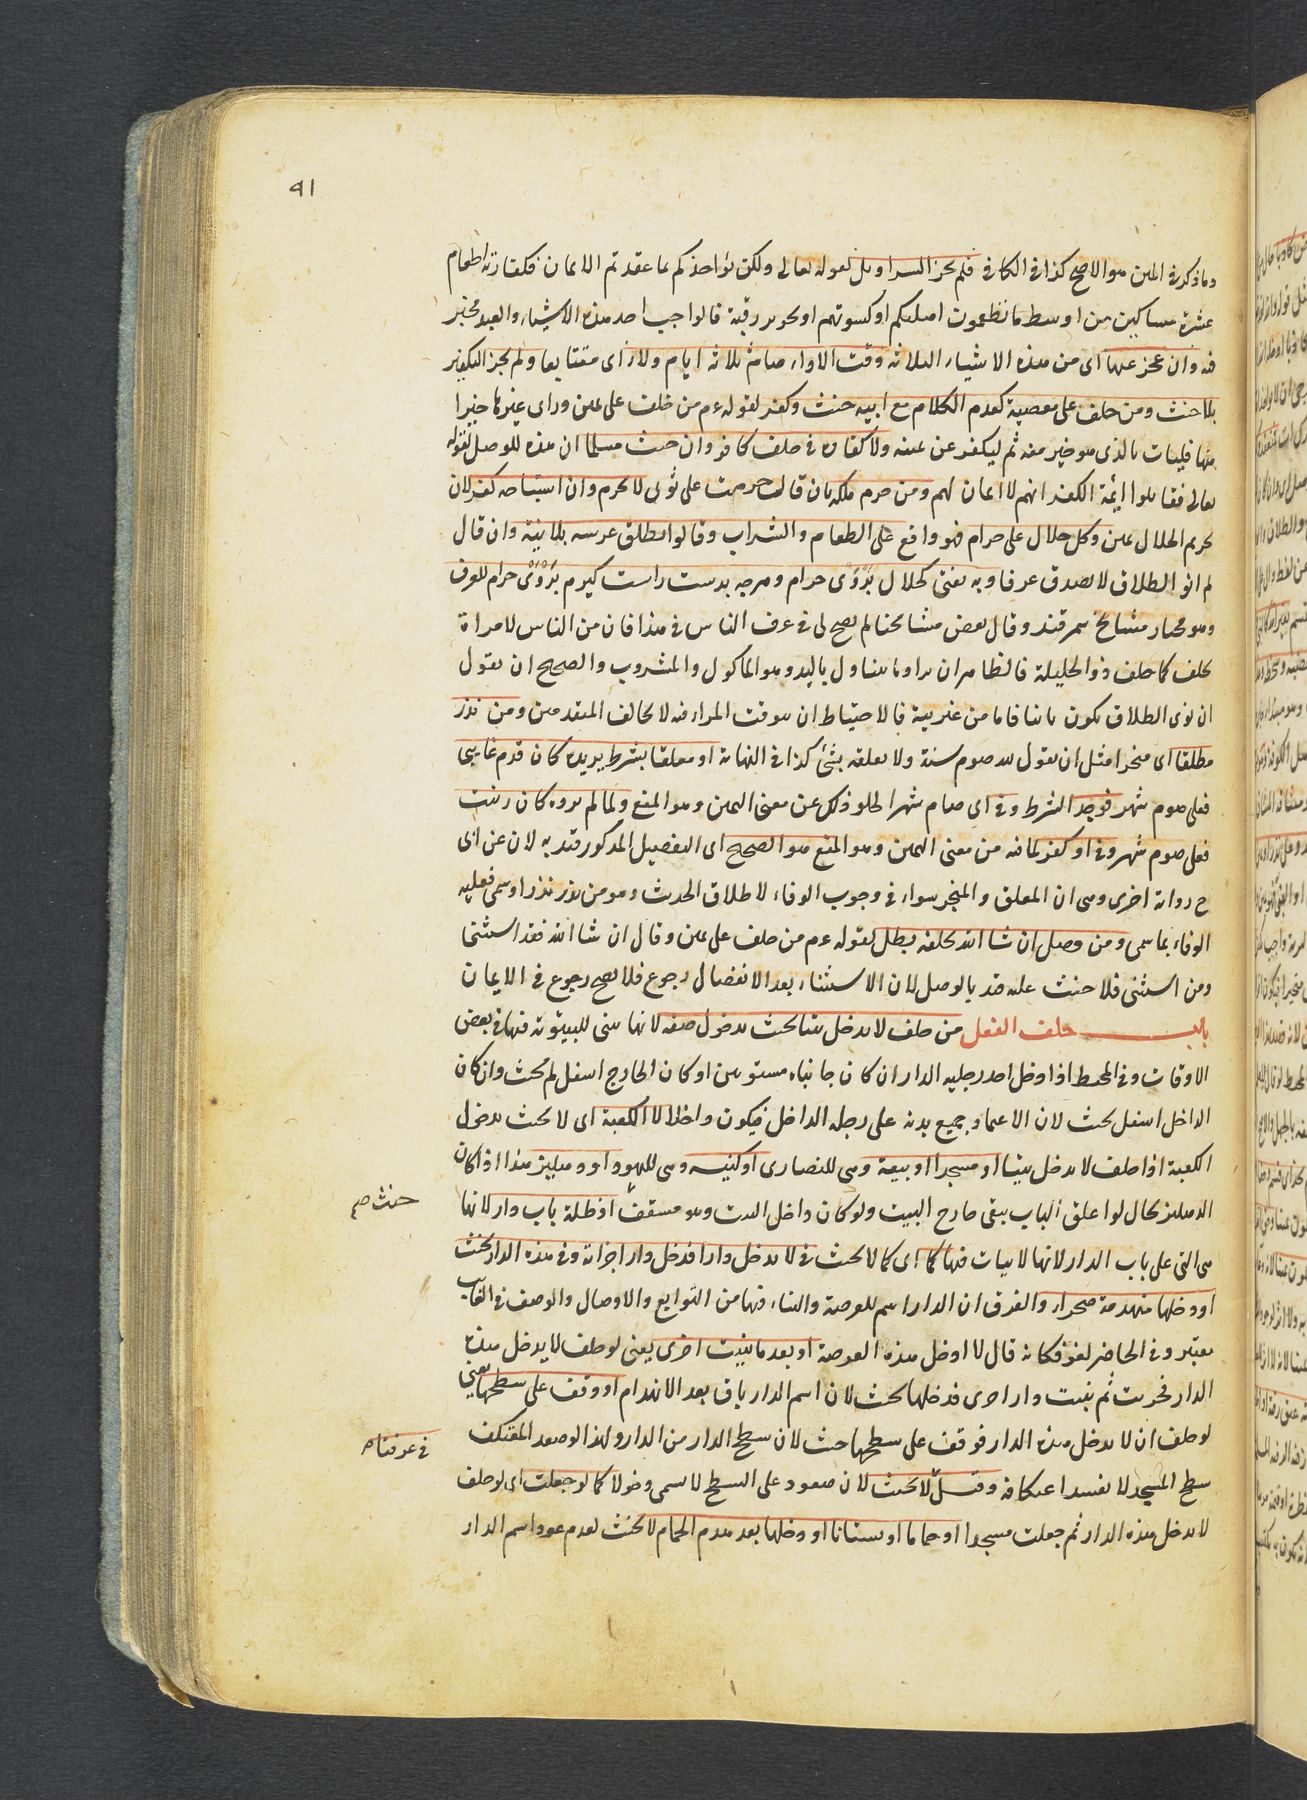 91
وما ذكر في المتن هو الاصح كذا في الكافي فلم يجز السراويل لقوله تعالى ولكن يؤاخذكم بما عقدتم الايمان فكفارته اطعام
عشرة مساكين من اوسط ما تطعمون اهليكم او كسوتهم او تحرير رقبة فالواجب احد هذه الاشياء والعبد مخير
فيه وان عجز عنها اى من هذه الاشياء الثلاثة وقت الاداء صام ثلاثة ايام ولاء اى متتابعا ولم يجز التكفير
بلا حنث ومن حلف على معصية كعدم الكلام مع ابيه حنث وكفر لقوله عم من حلف على يمين وراى غيرها خيرا
منها فليات بالذى هو خير منه ثم ليكفر عن يمينه ولا كفارة في حلف كافر وان حنث مسلما ان هذه للوصل لقوله
تعالى فقاتلوا ايمة الكفر انهم لا ايمان لهم ومن حرم ملكه بان قال حرمت على ثوبى لا يحرم وان استباحه كفر لان
تحريم الحلال يمين وكل حلال على حرام فهو واقع على الطعام والشراب وقالوا يطلق عرسه بلا نية وان قال
لم انو الطلاق لا يصدق عرفا وبه يفتى كحلال بروى حرام وهرچه بدست راست كيرم بروى حرام للعرف
وهو مختار مشايخ سمرقند وقال بعض مشايخنا لم يصح لى في عرف الناس في هذا فان من الناس لا مراة له
يحلف كما حلف ذو الحليلة فالظاهر ان يراد ما يتناول باليد وهو الماكول والمشروب والصحيح ان يقول
ان نوى الطلاق يكون باينا فاما من غير نية فالاحتياط ان يوقف المراء فيه لا يخالف المتقدمين ومن نذر
مطلقا اى منجزا مثل ان يقول لله صوم سنة ولا يعلقه بشئ كذا في النهاية او معلقا بشرط يريده كان قدم غايبى
فعلى صوم شهر فوجد الشرط وفى اى صام شهرا لخلو ذلك عن معنى اليمين وهو المنع ولما لم يرده كان زنيت
فعلى صوم شهر وفى او كفر لما فيه من معنى اليمين وهو المنع هو الصحيح اى التفصيل المذكور قيد به لان عن ابى
ح رواية اخرى وهى ان المعلق والمنجز سواء في وجوب الوفاء لاطلاق الحديث وهو من نذر نذرا وسمى فعليه
الوفاء بما سمى ومن وصل ان شا الله بحلفه بطل لقوله عم من حلف على يمين وقال ان شا الله فقد استثنى
ومن استثنى فلا حنث عليه قيد بالوصل لان الاستثناء بعد الانفصال رجوع فلا يصح رجوع في الايمان
باب حلف الفعل من حلف لا يدخل بيتا يحنث بدخول صفة لانها تبنى للبيتوتة فيها في بعض
الاوقات وفى المحيط اذا ادخل احد رجليه الدار ان كان جانباه مستويين او كان الخارج اسفل لم يحنث وان كان
الداخل اسفل يحنث لان الاعتماد جميع بدنه على رجله الداخل فيكون داخلا لا الكعبة اى لا يحنث بدخول
الكعبة اذا حلف لا يدخل بيتا او مسجدا او بيعة وهى للنصارى او كنيسة وهى لليهود او دهليز هذا اذا كان
الدهليز بحال لو اغلق الباب يبقى خارج البيت ولو كان داخل البيت وهو مسقف او ظلة باب دار لانها
حنث صح
هى التى على باب الدار لانها لا يبات فيها كما اى كما لا يحنث في لا يدخل دارا فدخل دارا خرابة وفى هذه الدار يحنث
او دخلها منهدمة صحراء والفرق ان الدار اسم للعرصة والبناء فيها من التوابع والاوصال والوصف في الغايب
معتبر وفى الحاضر لغو فكانه قال لا ادخل هذه العرصة او بعد ما بنيت اخرى يعنى لو حلف لا يدخل هذه
الدار فخربت ثم بنيت دارا اخرى فدخلها يحنث لان اسم الدار باق بعد الانهدام او وقف على سطحها يعنى
لو حلف ان لا يدخل هذه الدار فوقف على سطحها حنث لان سطح الدار من الدار ولهذا لو صعد المعتكف
سطح المسجد لا يفسد اعتكافه وقيل لا يحنث لان صعود على السطح لا يسمى دخولا كما لو جعلت اى لو حلف
في عرفنا صح
لا يدخل هذه الدار ثم جعلت مسجدا او حماما او بستانا او دخلها بعد هدم الحمام لا يحنث لعدم عود اسم الدار